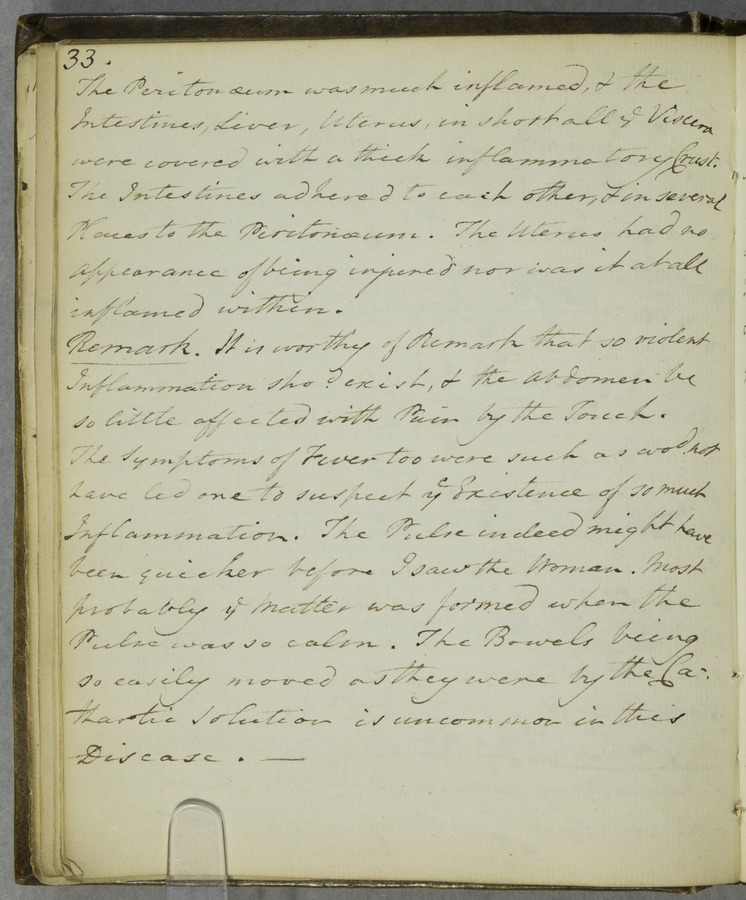 33.
The Peritonæum was much inflamed, & the
Intestines, Liver, Uterus, in short all yᵉ Viscera
were covered with a thick inflammatory Crust.
The Intestines adhered to each other, & in several
Places to the Peritonæum. The Uterus had no
appearance of being injured nor was it at all
inflamed within.
Remark. It is worthy of Remark that so violent
Inflammation shoᵈ exist, & the Abdomen be
so little affected with Pain by the Touch.
The Symptoms of Fever too were such as woᵈ not
have led one to suspect yᵉ Existence of so much
Inflammation. The Pulse indeed might have
been quicker before I saw the Woman. Most
probably yᵉ Matter was formed when the
Pulse was so calm. The Bowels being
so easily moved as they were by the Ca-
thartic Solution is uncommon in this
Disease. —